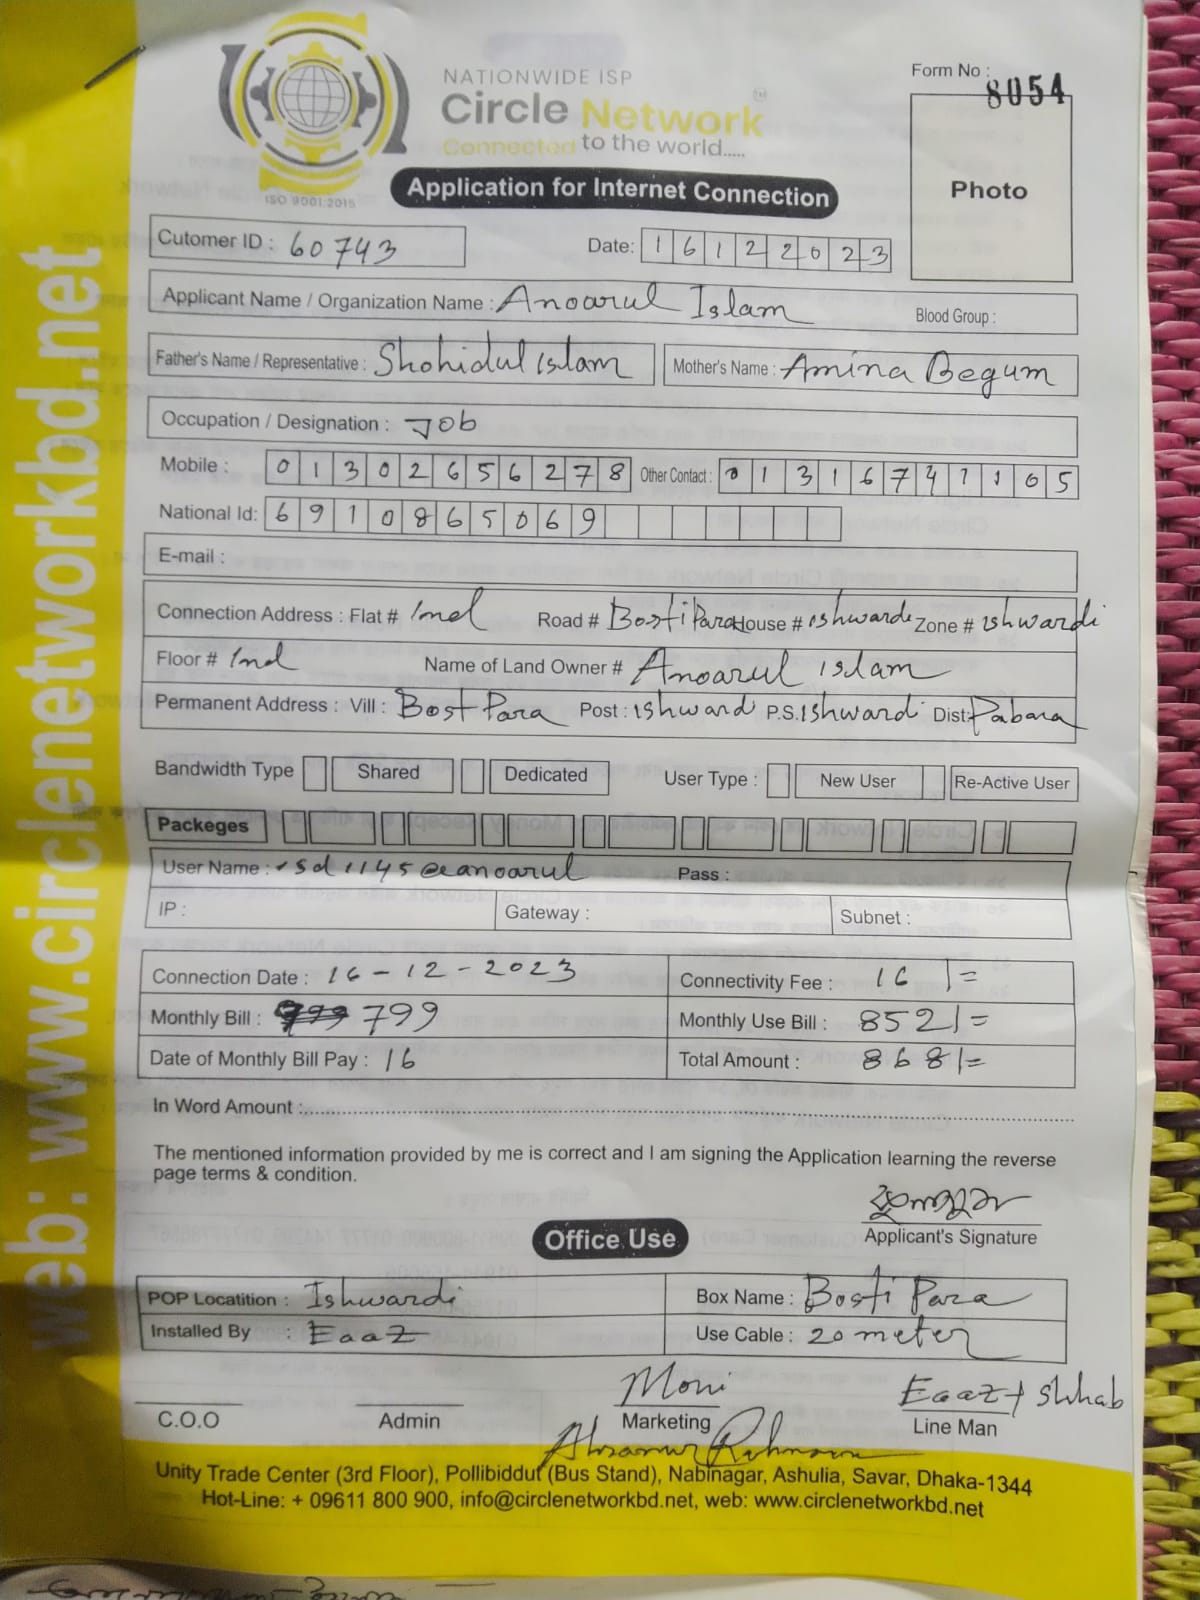 NATIONWIDE ISP
Circle Network TM
Connected to the world.....
ISO 9001:2015
Form No : 8054
Photo
Application for Internet Connection
Cutomer ID : 60743 Date: 16122023
Applicant Name / Organization Name : Anoarul Islam Blood Group :
Father's Name / Representative : Shohidul islam Mother's Name : Amina Begum
Occupation / Designation : Job
Mobile : 01302656278 Other Contact : 01316747105
National Id: 6910865069
E-mail :
Connection Address : Flat # 1nd Road # Bosti Para House # ishwardi Zone # ishwardi
Floor # 1nd Name of Land Owner # Anoarul islam
Permanent Address : Vill : Bost Para Post : ishwardi P.S. ishwardi Dist: Pabana
Bandwidth Type Shared Dedicated User Type : New User Re-Active User
Packeges
User Name : isd1145@anoarul Pass :
IP : Gateway : Subnet :
Connection Date : 16-12-2023 Connectivity Fee : 16 /=
Monthly Bill : 799 Monthly Use Bill : 852/=
Date of Monthly Bill Pay : 16 Total Amount : 868/=
In Word Amount :
The mentioned information provided by me is correct and I am signing the Application learning the reverse
page terms & condition.
Applicant's Signature
Office Use
POP Locatition : Ishwardi Box Name : Bosti Para
Installed By : Eaaz Use Cable : 20 meter
Moni Eaaz + Shihab
C.O.O Admin Marketing Line Man
Ahsanur Rahman
Unity Trade Center (3rd Floor), Pollibiddut (Bus Stand), Nabinagar, Ashulia, Savar, Dhaka-1344
Hot-Line: + 09611 800 900, info@circlenetworkbd.net, web: www.circlenetworkbd.net
web: www.circlenetworkbd.net